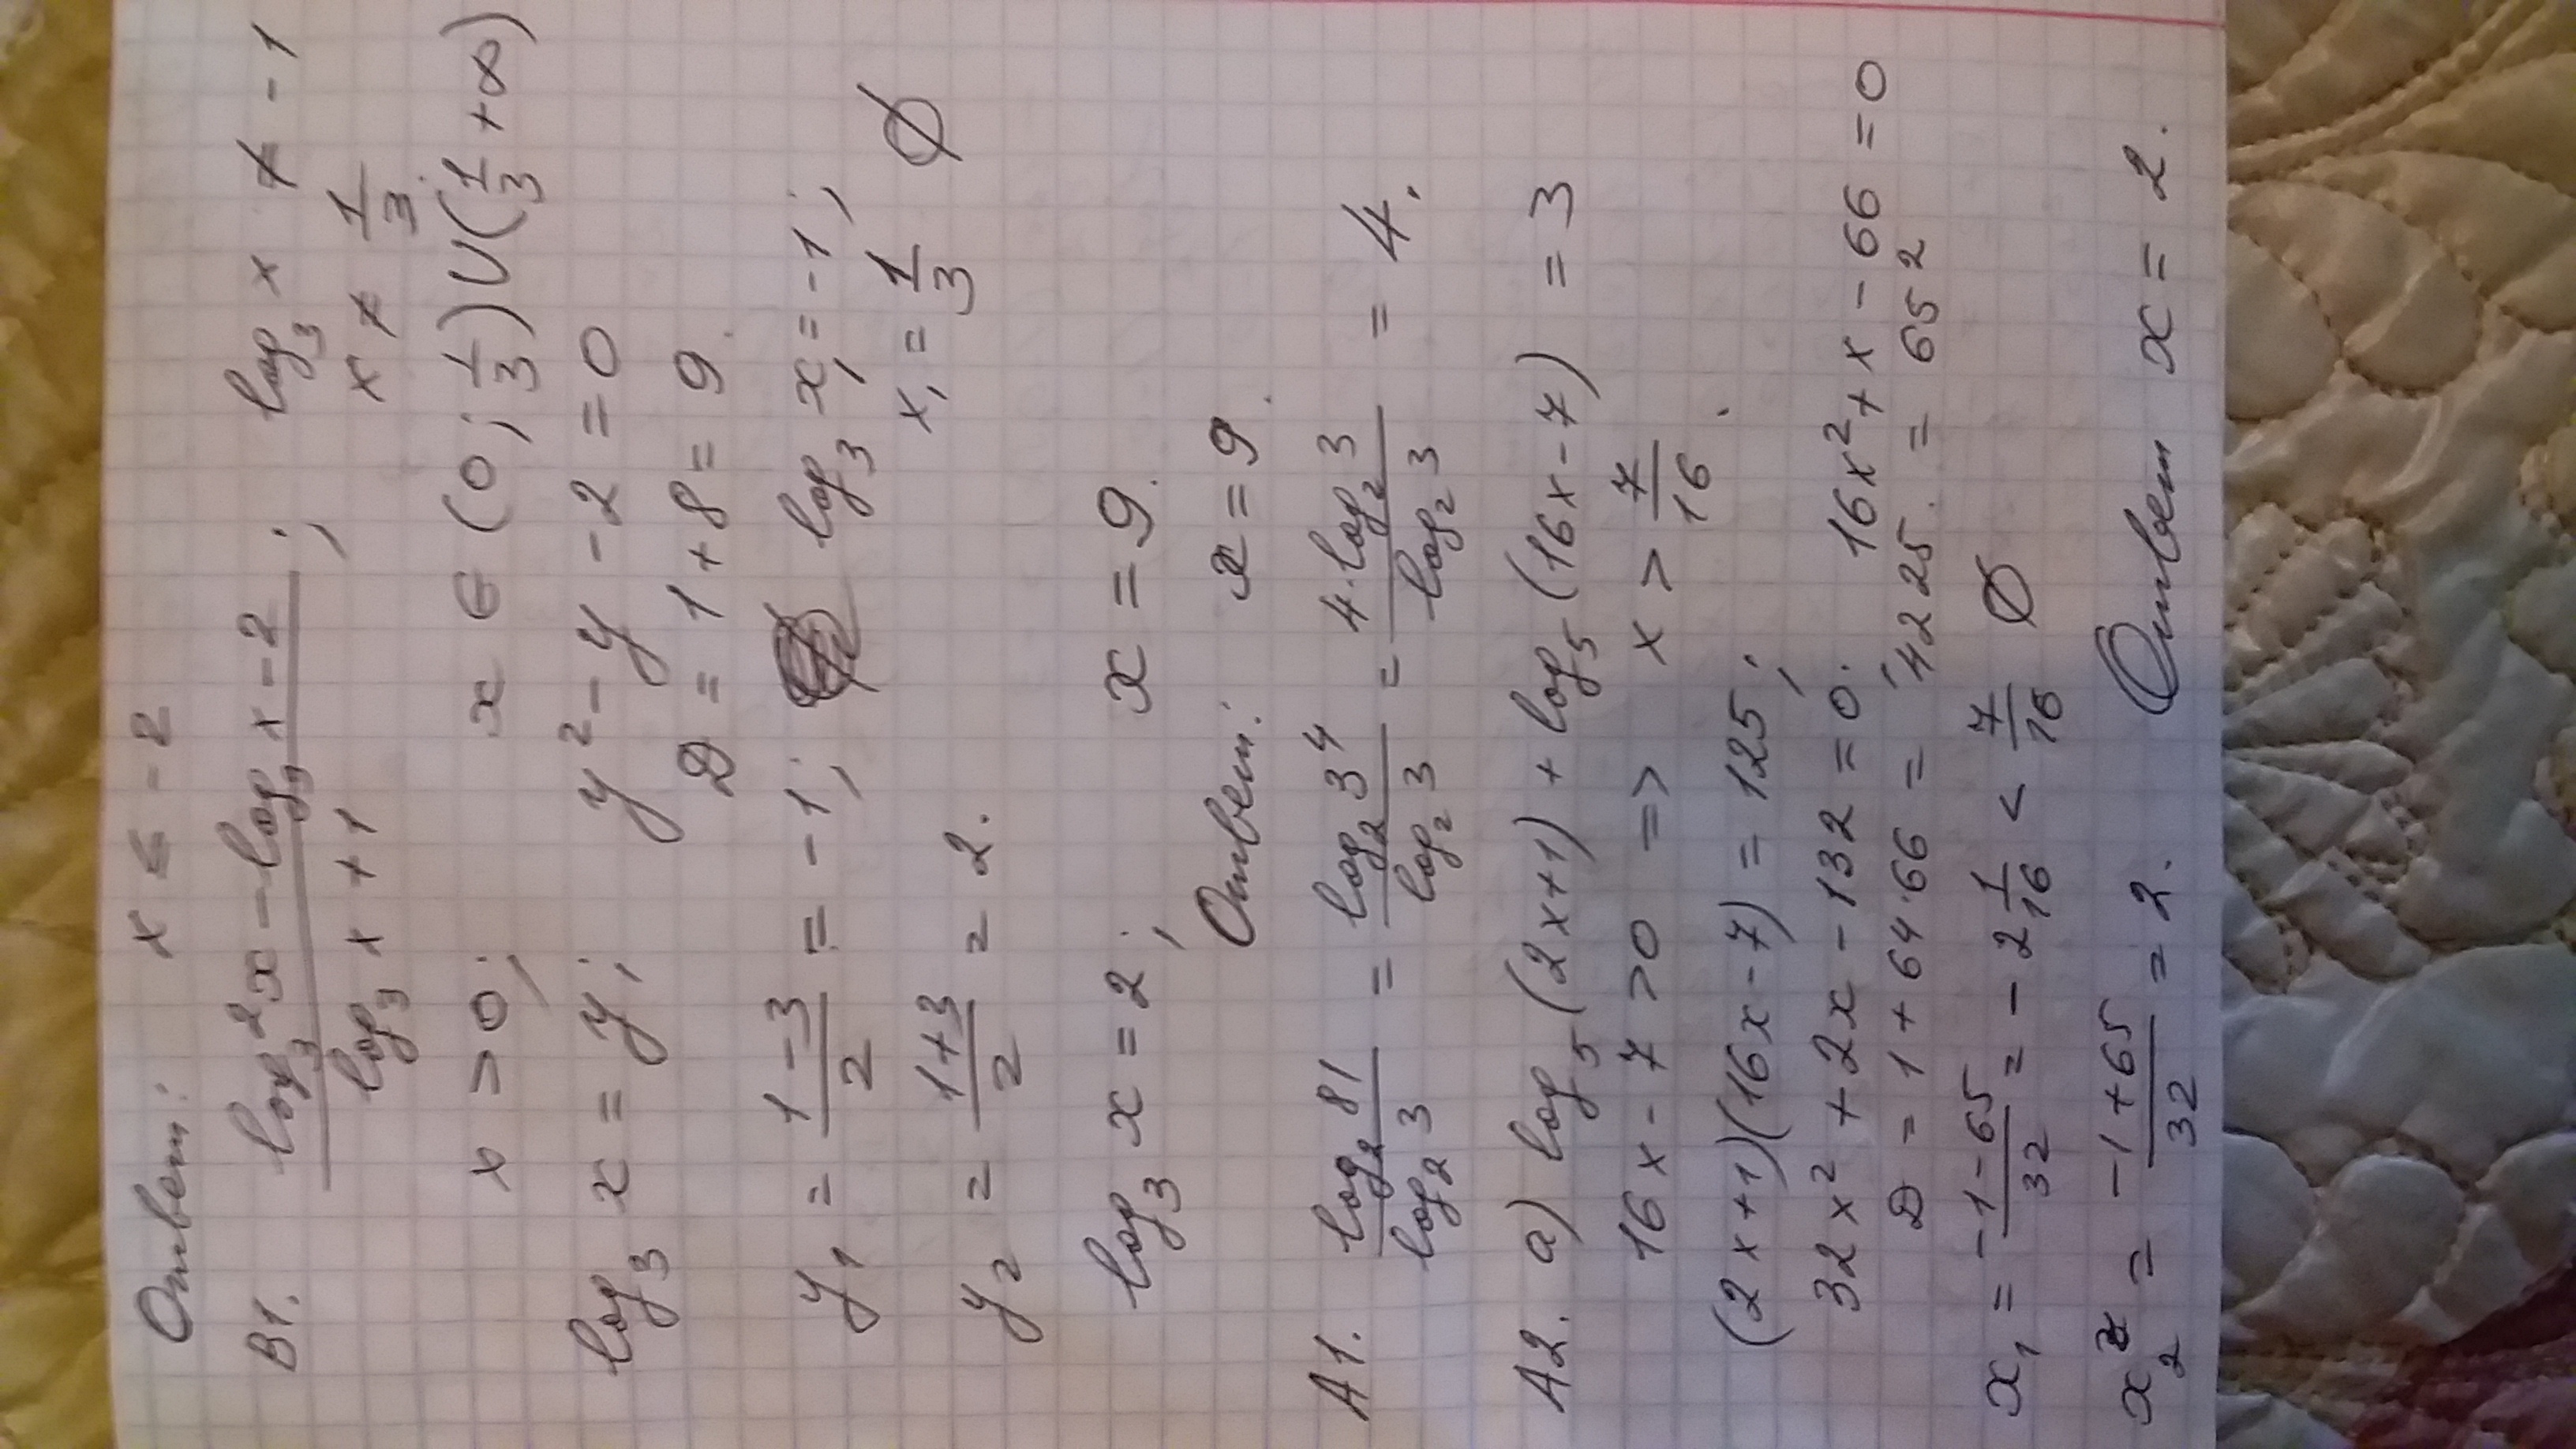 Ответ: x ≤ -2
В1. (log₃²x - log₃x - 2)/(log₃x + 1); log₃x ≠ -1
x ≠ 1/3
x > 0; x ∈ (0; 1/3) ∪ (1/3; +∞)
log₃x = y; y² - y - 2 = 0
D = 1 + 8 = 9.
y₁ = (1 - 3)/2 = -1; log₃x₁ = -1;
x₁ = 1/3 ∅
y₂ = (1+3)/2 = 2.
log₃x = 2; x = 9.
Ответ: x = 9.
А1. log₂81/log₂3 = log₂3⁴/log₂3 = 4·log₂3/log₂3 = 4.
А2. а) log₅(2x+1) + log₅(16x-7) = 3
16x - 7 > 0 => x > 7/16.
(2x+1)(16x-7) = 125;
32x² + 2x - 132 = 0. 16x² + x - 66 = 0
D = 1 + 64·66 = 4225. = 65²
x₁ = (-1-65)/32 = -2 1/16 < 7/16 ∅
x₂ = (-1+65)/32 = 2. Ответ x = 2.